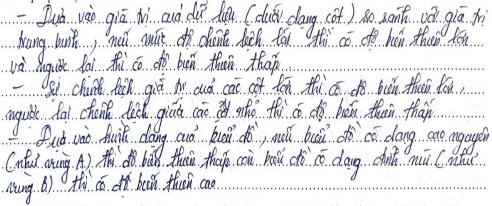 - Dựa vào giá trị của dữ liệu (dưới dạng cột) so sánh với giá trị
trung bình, nếu mức độ chênh lệch lớn thì có độ biến thiên lớn
và ngược lại thì có độ biến thiên thấp.
- Sự chênh lệch giá trị của các cột lớn thì có độ biến thiên lớn,
ngược lại chênh lệch giữa các cột nhỏ thì có độ biến thiên thấp
- Dựa vào hình dạng của biểu đồ, nếu biểu đồ có dạng cao nguyên
(như vùng A) thì độ biến thiên thấp còn biểu đồ có dạng đỉnh núi (như
vùng B) thì có độ biến thiên cao